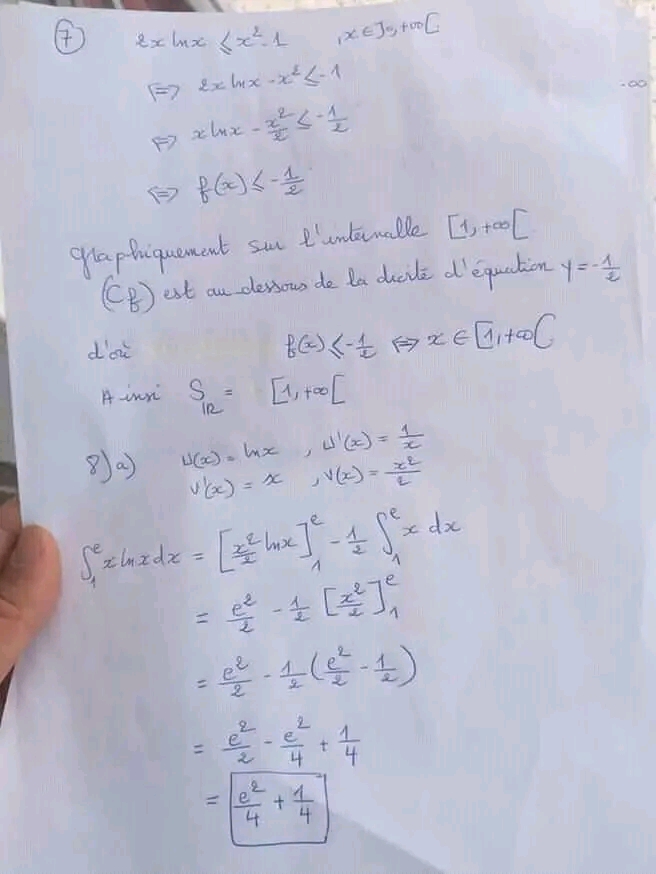 7 2x ln x ≤ x² - 1 , x ∈ ]0, +∞[
⟺ 2x ln x - x² ≤ -1
-∞
⟺ x ln x - x²/2 ≤ -1/2
⟺ f(x) ≤ -1/2
graphiquement sur l'intervalle [1, +∞[
(Cf) est au dessous de la droite d'équation y = -1/2
d'où f(x) ≤ -1/2 ⟺ x ∈ [1, +∞[
Ainsi S_IR = [1, +∞[
8) a) U(x) = ln x , U'(x) = 1/x
V'(x) = x , V(x) = x²/2
∫₁ᵉ x ln x dx = [x²/2 ln x]₁ᵉ - 1/2 ∫₁ᵉ x dx
= e²/2 - 1/2 [x²/2]₁ᵉ
= e²/2 - 1/2 (e²/2 - 1/2)
= e²/2 - e²/4 + 1/4
= e²/4 + 1/4